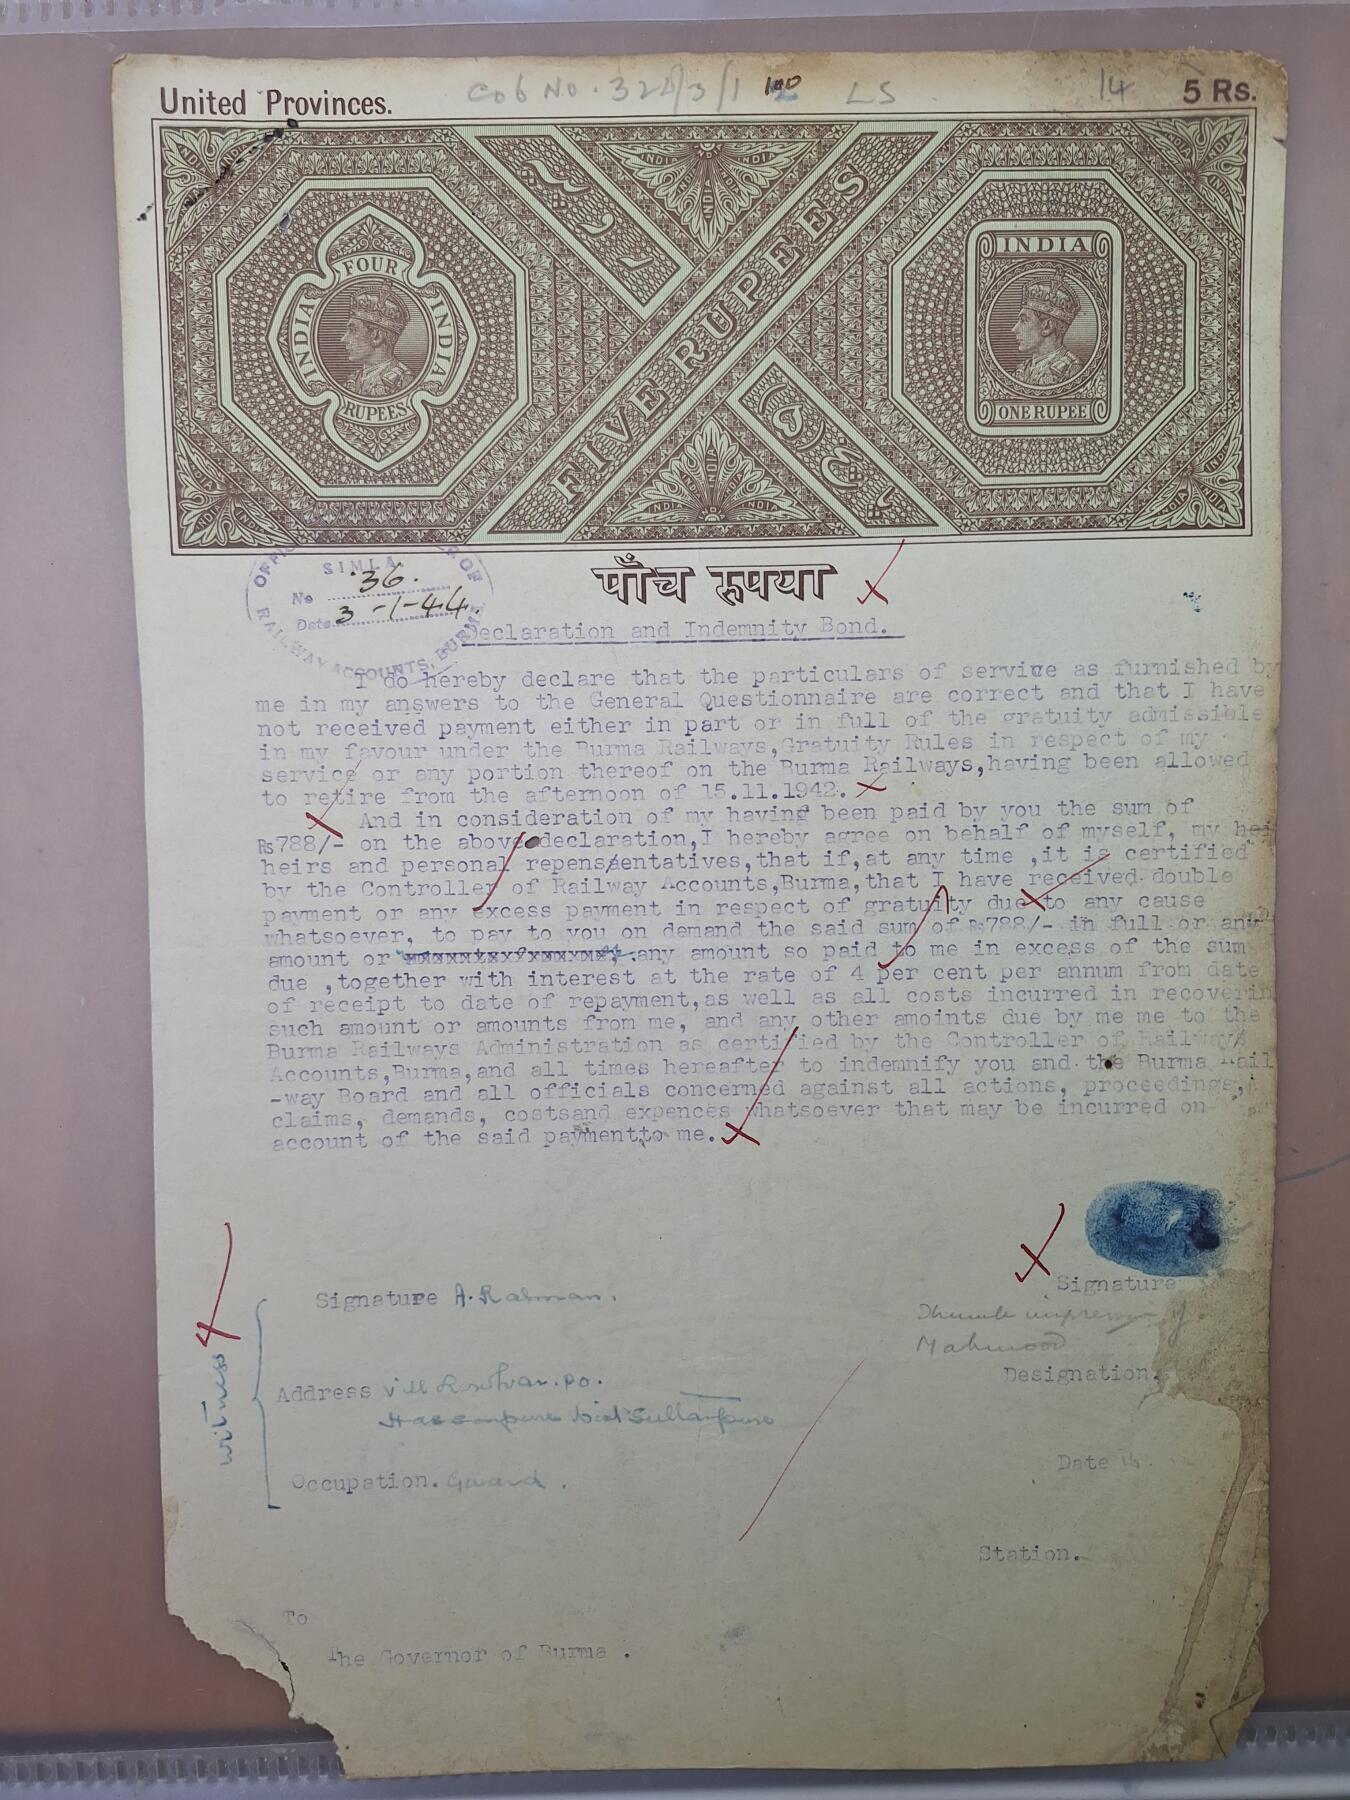 United Provinces.
5 Rs.
14
LS
INDIA
FOUR
INDIA
INDIA
RUPEES
FIVE RUPEES
INDIA
ONE RUPEE
पाँच रुपया
SIMLA
No 36.
Date 3-1-44.
RAILWAY ACCOUNTS, BURMA
Declaration and Indemnity Bond.
I do hereby declare that the particulars of service as furnished by
me in my answers to the General Questionnaire are correct and that I have
not received payment either in part or in full of the gratuity admissible
in my favour under the Burma Railways,Gratuity Rules in respect of my
service or any portion thereof on the Burma Railways,having been allowed
to retire from the afternoon of 15.11.1942.
And in consideration of my having been paid by you the sum of
Rs788/- on the above declaration,I hereby agree on behalf of myself, my hei
heirs and personal repenssentatives,that if,at any time ,it is certified
by the Controller of Railway Accounts,Burma,that I have received double
payment or any excess payment in respect of gratuity due to any cause
whatsoever, to pay to you on demand the said sum of Rs788/- in full or any
amount or any amount so paid to me in excess of the sum
due ,together with interest at the rate of 4 per cent per annum from date
of receipt to date of repayment,as well as all costs incurred in recoverin
such amount or amounts from me, and any other amoints due by me me to the
Burma Railways Administration as certified by the Controller of Railways
Accounts,Burma,and all times hereafter to indemnify you and the Burma Rail
-way Board and all officials concerned against all actions, proceedings,
claims, demands, costsand expences whatsoever that may be incurred on
account of the said paymentto me.
Signature
Thumb impression of
Mahmood
Designation.
Date
Station.
witness
Signature A. Rahman.
Address Vill P.O.
Hassanpur Dist Sultanpur
Occupation. Guard.
To
The Governor of Burma .